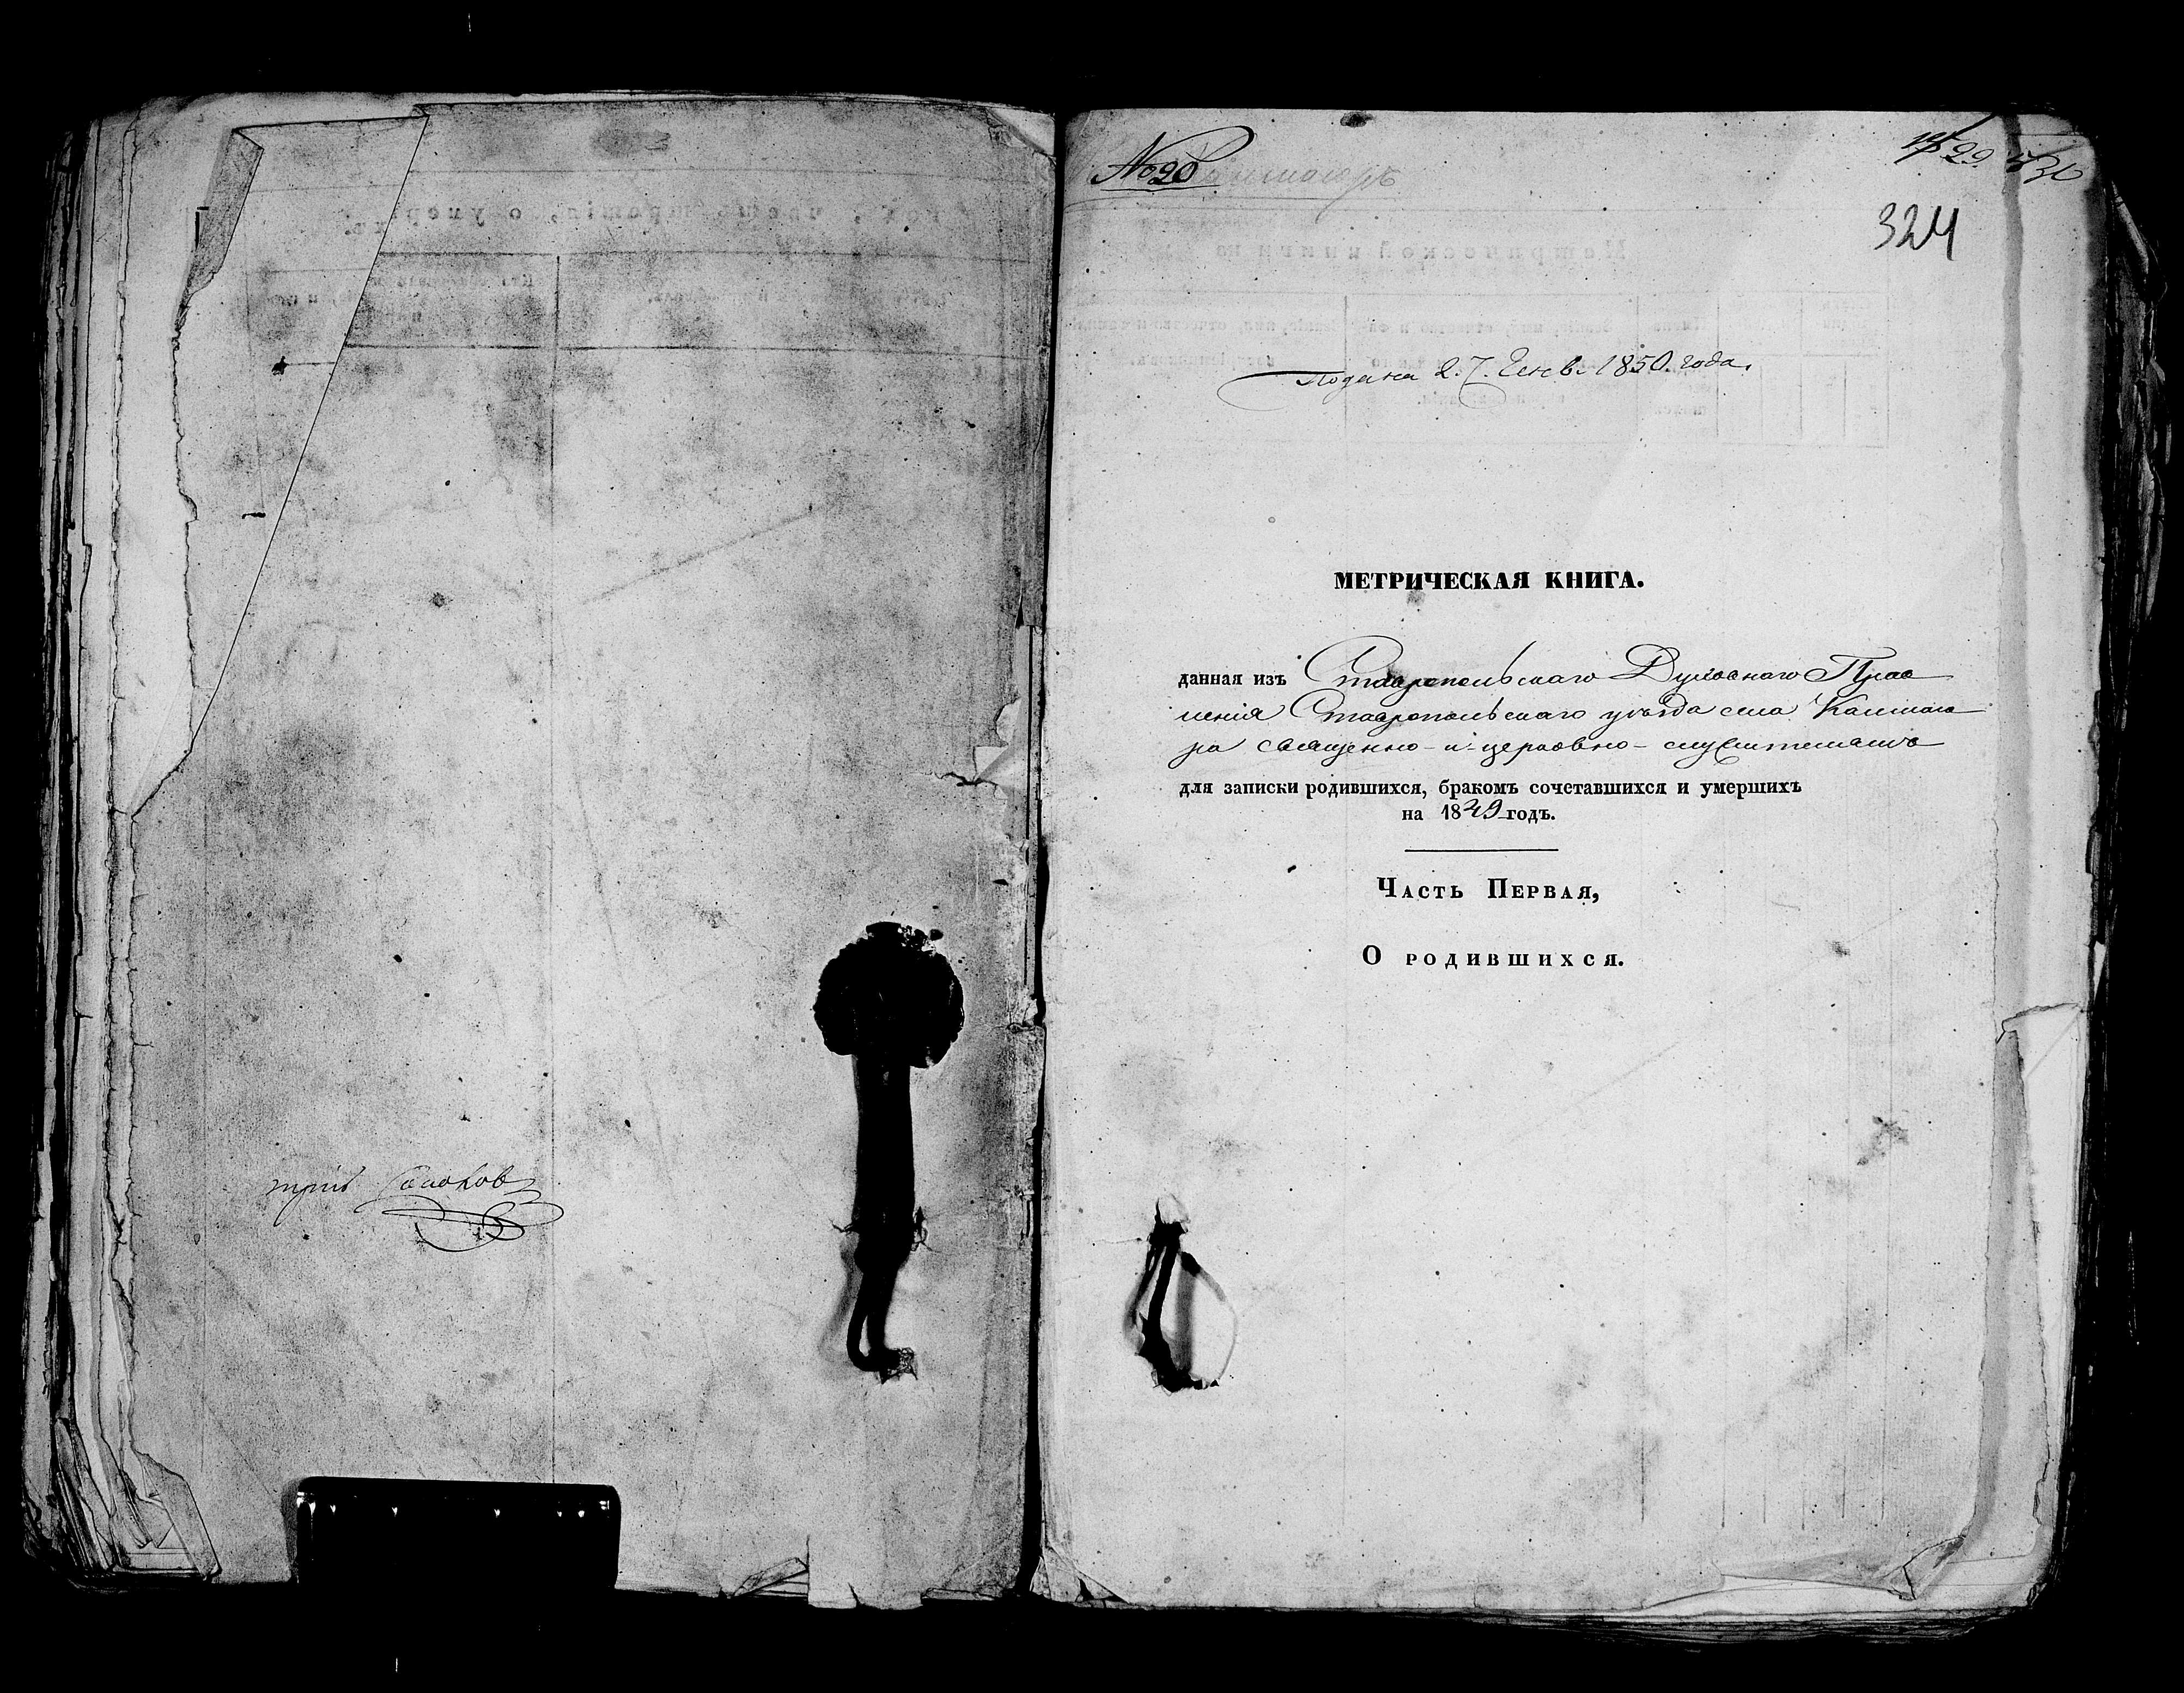 трій Соколов
№ 20
324
Подана 27. Генв. 1850. года.
МЕТРИЧЕСКАЯ КНИГА.
данная изъ Ставропольскаго Духовнаго Прав
ленія Ставропольскаго уѣзда села
ра священно - и - церковно - служителямъ
для записки родившихся, бракомъ сочетавшихся и умершихъ
на 1849 годъ.
Часть Первая,
О родившихся.